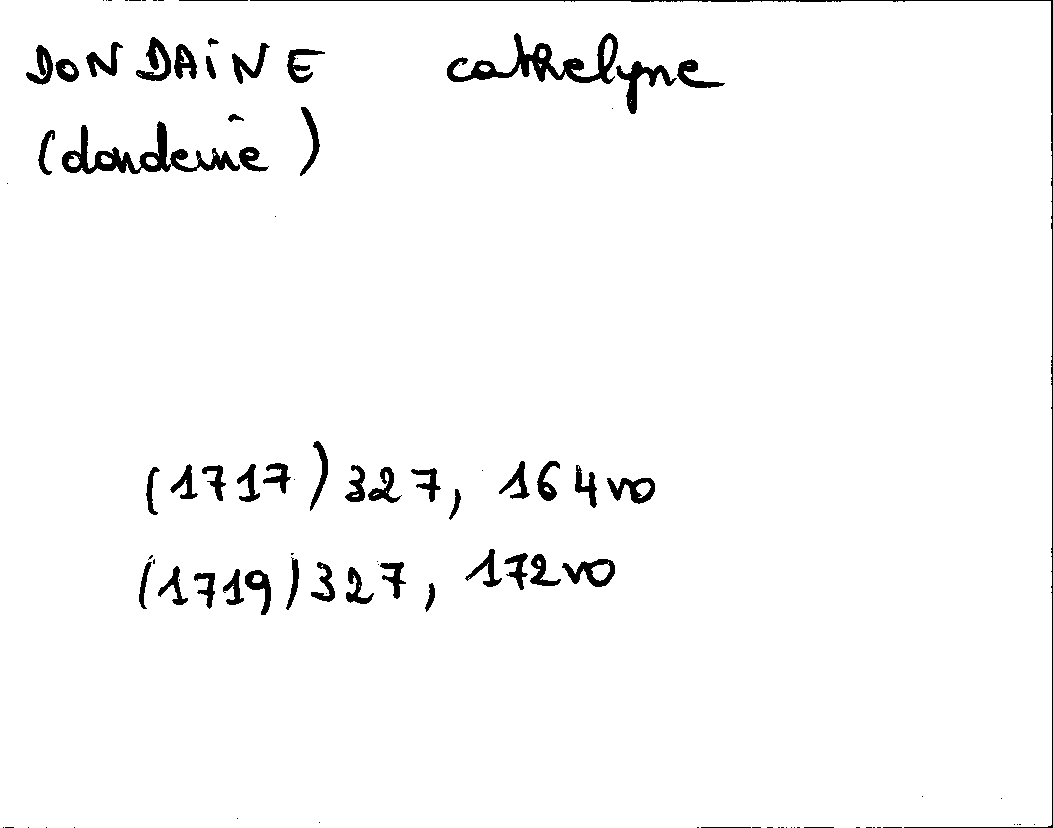 DONDAINE cathelyne
(dondeine)
(1717) 327, 164vo
(1719) 327, 172vo